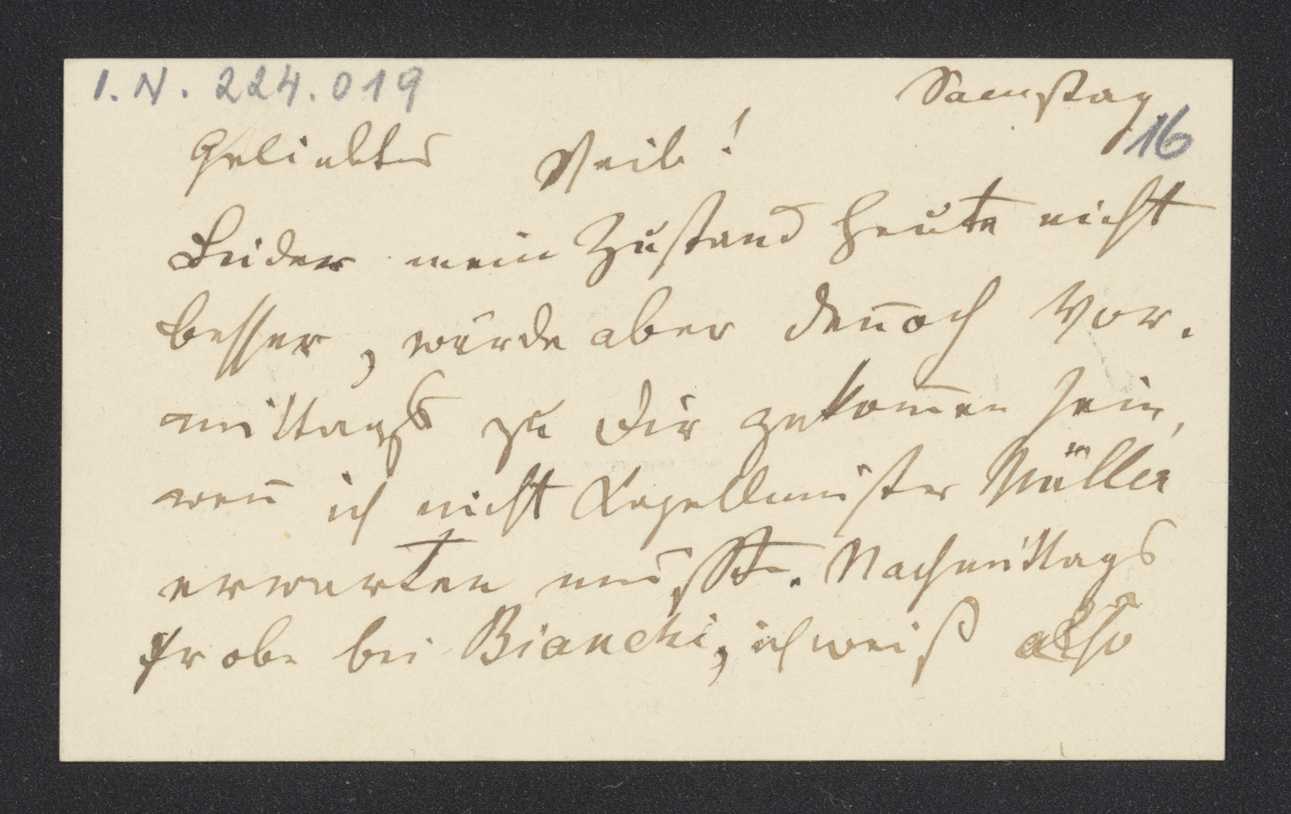 I. N. 224.019
Samstag
16
Geliebtes Weib!
Leider mein Zustand heute nicht
besser, würde aber deñoch Vor-
mittags zu Dir gekom̄en sein,
weñ ich nicht Kapellmeister Müller
erwarten müsste. Nachmittags
Probe bei Bianchi, ich weiß also